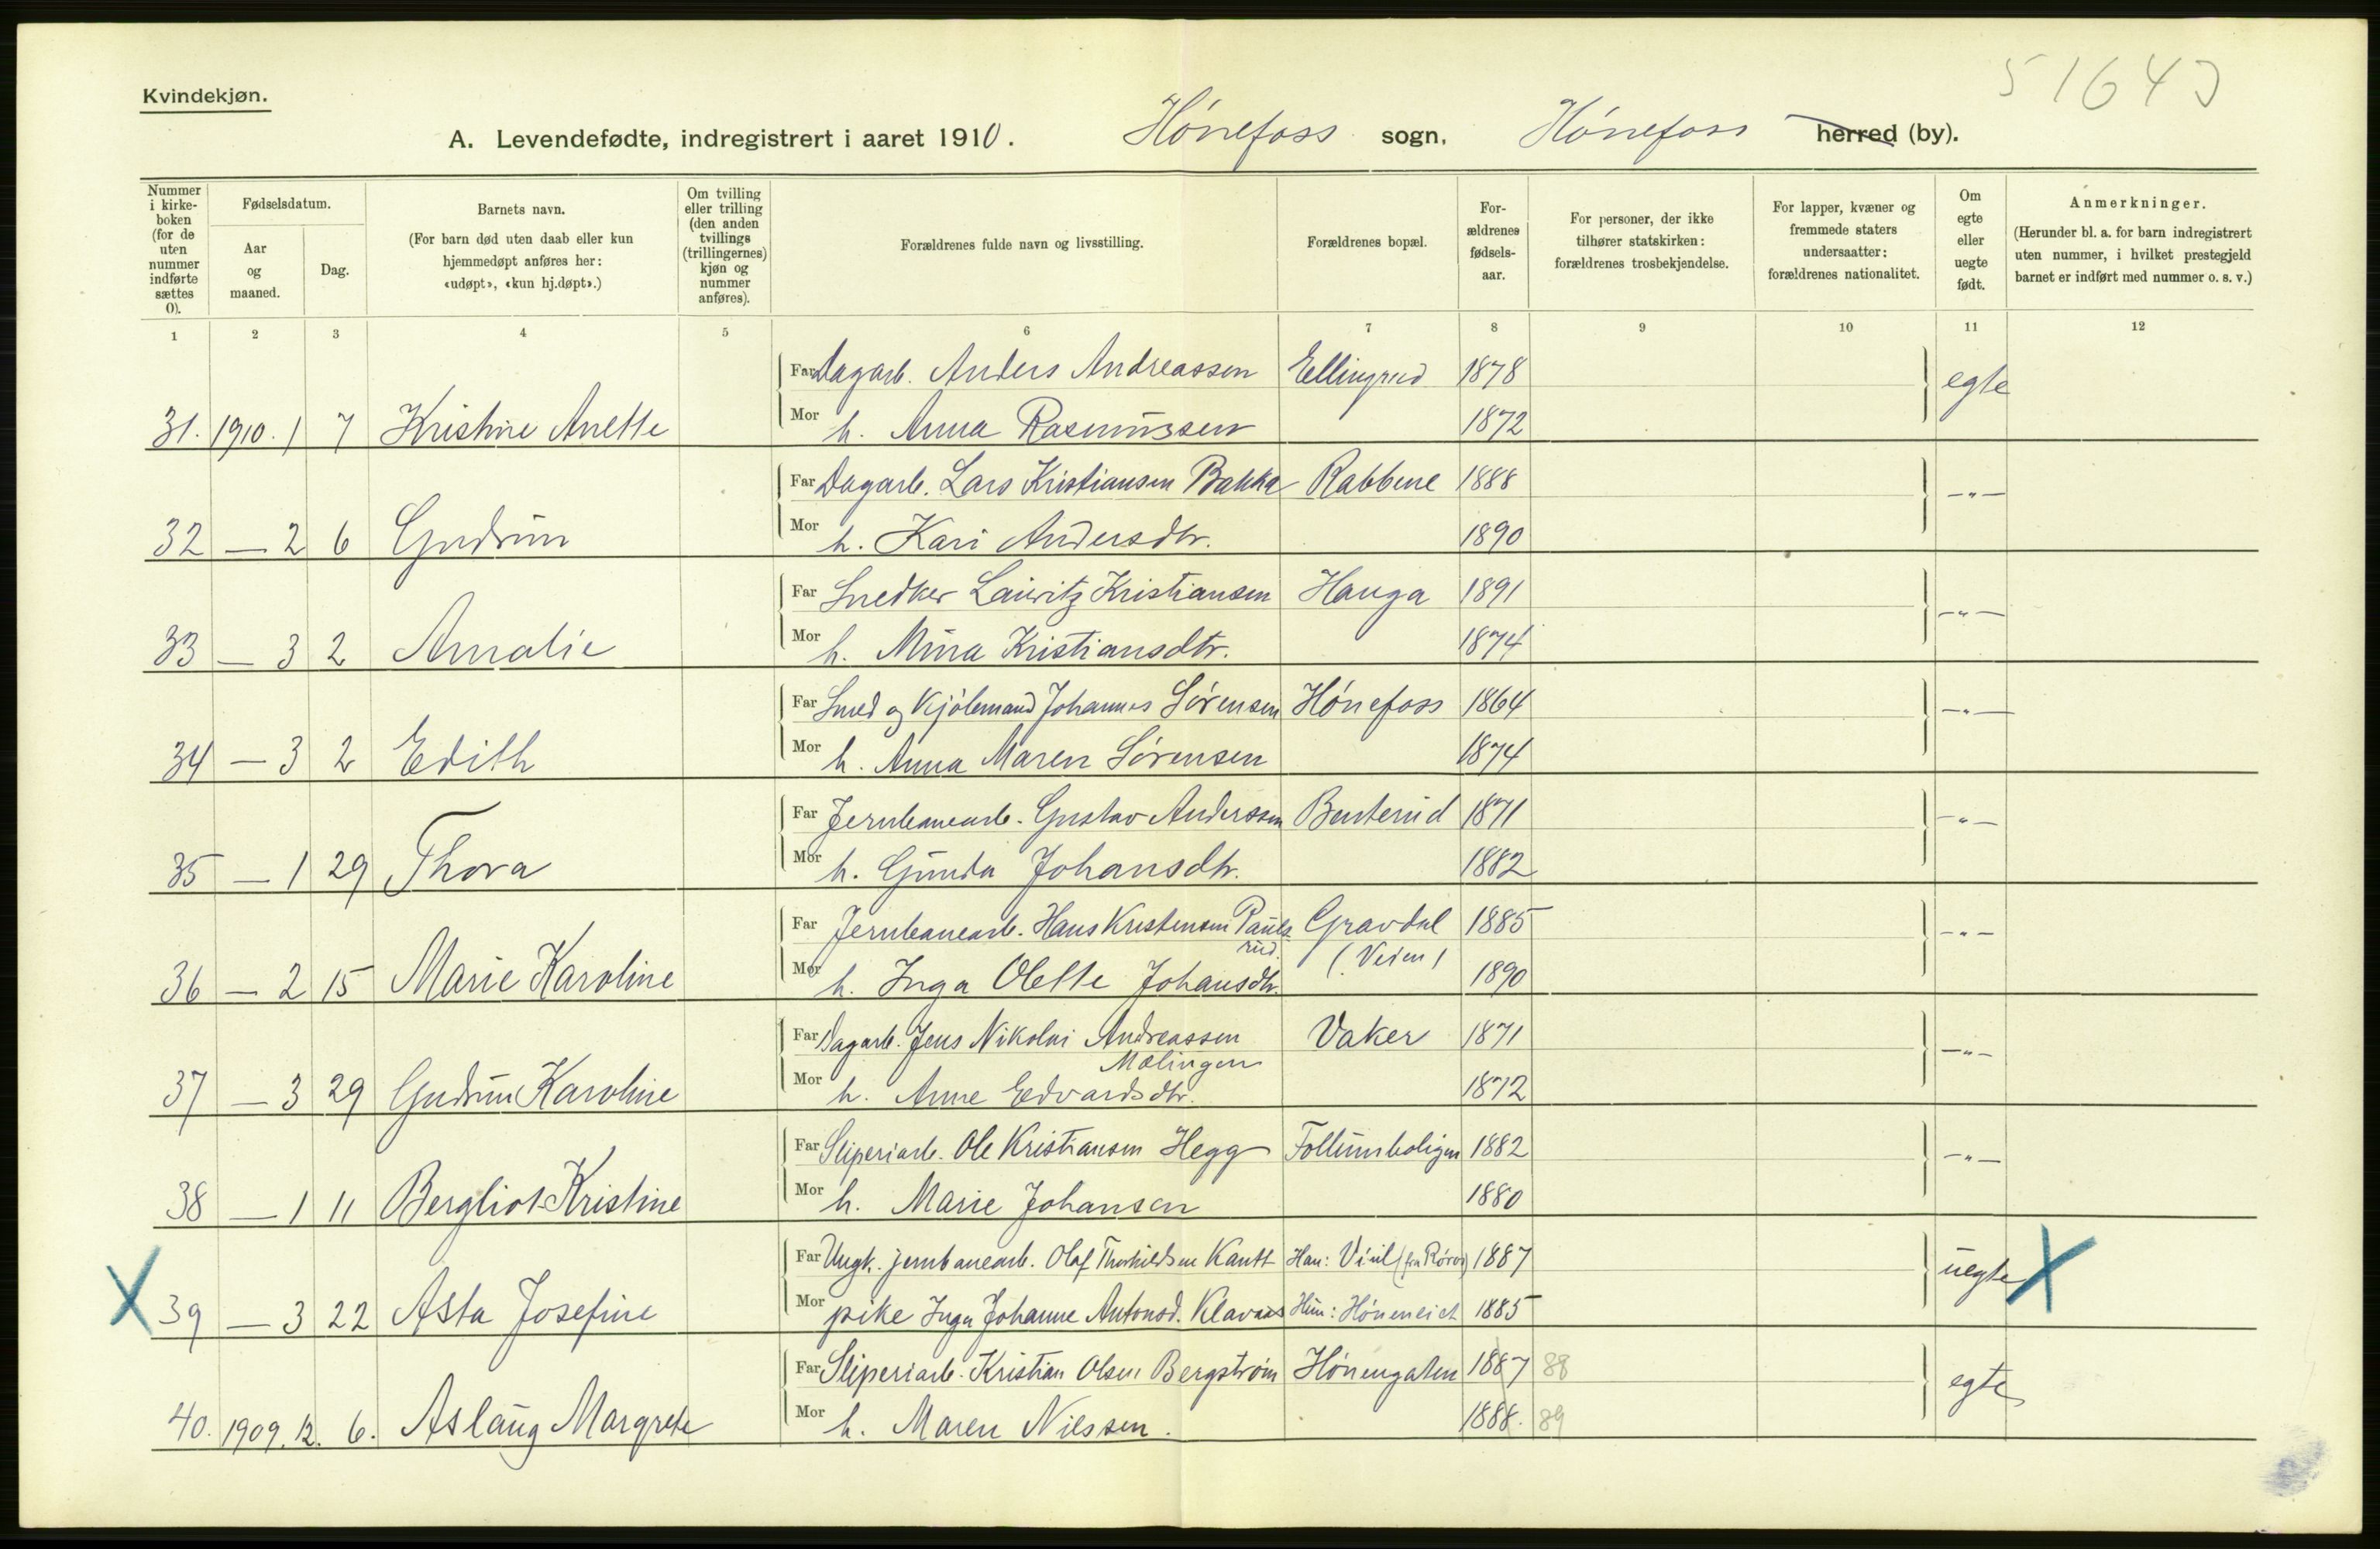 51643
Kvindekjøn.
A. Levendefødte, indregistrert i aaret 1910. Hønefoss sogn, Hønefoss herred (by).
Nummer i kirke-boken (for de uten nummer indførte sættes 0).
Fødselsdatum.
Aar og maaned.
Dag.
Barnets navn.
(For barn død uten daab eller kun hjemmedøpt anføres her: «udøpt», «kun hj.døpt».)
Om tvilling eller trilling (den anden tvillings (trillingernes) kjøn og nummer anføres).
Forældrenes fulde navn og livsstilling.
Forældrenes bopæl.
For-ældrenes fødsels-aar.
For personer, der ikke tilhører statskirken: forældrenes trosbekjendelse.
For lapper, kvæner og fremmede staters undersaatter: forældrenes nationalitet.
Om egte eller uegte født.
Anmerkninger.
(Herunder bl. a. for barn indregistrert uten nummer, i hvilket prestegjeld barnet er indført med nummer o. s. v.)
1 2 3 4 5 6 7 8 9 10 11 12
Far Dagarb. Anders Andreassen Ellingsrud 1878 egte
31. 1910. 1 7 Kristine Anette Mor h. Anna Rasmussen 1872
Far Dagarb. Lars Kristiansen Bakka Rabbene 1888 —"—
32 — 2 6 Gudrun Mor h. Kari Andersdtr. 1890
Far Snedker Lauritz Kristiansen Hauga 1891 —"—
33 — 3 2 Amalie Mor h. Mina Kristiansdtr. 1874
Far Smed og Kjølemand Johannes Sørensen Hønefoss 1864 —"—
34 — 3 2 Edith Mor h. Anna Maren Sørensen 1874
Far Jernbanearb. Gustav Anderssen Busterud 1871 —"—
35 — 1 29 Thora Mor h. Gunda Johansdtr. 1882
Far Jernbanearb. Hans Kristensen Pauls- Gravdal 1885 —"—
rud. (Veien)
36 — 2 15 Marie Karoline Mor h. Inga Olette Johansdtr. 1890
Far Dagarb. Jens Nikolai Andreassen Vaker 1871 —"—
Molingen
37 — 3 29 Gudrun Karoline Mor h. Anne Edvardsdtr. 1872
Far Sliperiarb. Ole Kristiansen Hegg Follumboligen 1882 —"—
38 — 1 11 Bergliot Kristine Mor h. Marie Johansen 1880
Far Ungk. jernbanearb. Olaf Thorkildsen Kantt Han: Viul (fra Røros) 1887 uegte X
X 39 — 3 22 Asta Josefine Mor pike Inga Johanne Antonsd. Klavnes Hun: Høneneiet 1885
Far Sliperiarb. Kristian Olsen Bergstrøm Hønengaten 1887 88 egte
40. 1909. 12. 6. Aslaug Margrete Mor h. Maren Nilssen. 1888. 89